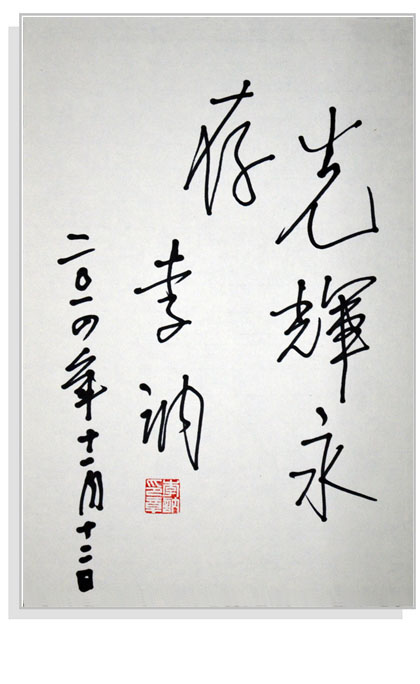 光輝永
存
李訥
二〇一四年十一月十二日
李訥之章